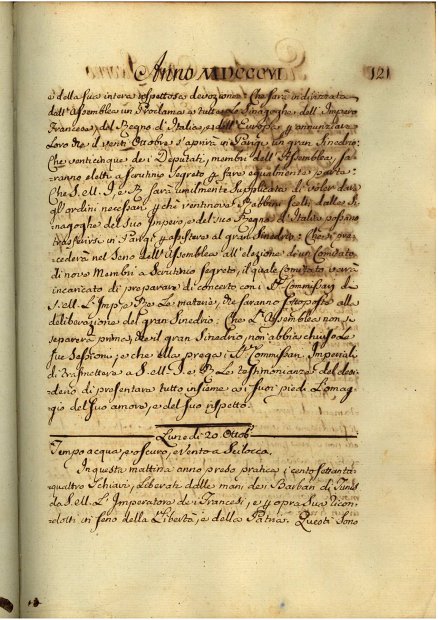 Anno MDCCCVI
121
e della sua intera rispettosa devozione: Che sarà indirizzata
dall'Assemblea un Proclama a tutte le Sinagoghe dell'Impero
Francese, del Regno d'Italia, e dell'Europa p annunziare
Loro che il venti Ottobre s'aprirà in Parigi un gran Sinedrio:
Che venticinque dei Deputati, membri dell'Assemblea, sa-
ranno eletti a scrutinio segreto p fare egualmente parte:
Che S. M. I. e R. sarà umilmente supplicata di voler dare
gl'ordini necessari, p che ventinove Rabbini scelti dalle Si-
nagoghe del suo Impero, e del suo Regno d'Italia possano
trasferirsi in Parigi p assistere al gran Sinedrio: Che si pro-
cederà nel seno dell'Assemblea all'elezione di un Comitato
di nove Membri a scrutinio segreto, il quale Comitato verrà
incaricato di preparare di concerto con i SSri Commissari di
S. M. L'Imp e Re Le materie, che saranno sottoposte alla
deliberazione del gran Sinedrio: Che L'Assemblea non si
separerà prima, che il gran Sinedrio non abbia chiuso Le
sue Sessioni, e che ella prega i Sri Commissari Imperiali
di trasmettere a S. M. I. e R. Le testimonianze del desi-
derio di presentare tutto insieme ai suoi piedi L'omag-
gio del suo amore, e del suo rispetto.
Lunedi 20 Ottob
Tempo acqua, e oscuro, e vento a Scilocca.
In questa mattina anno preso pratica i cento settanta-
quattro schiavi, Liberati dalle mani dei Barbari di Tunis
da S. M. L'Imperatore dei Francesi, e p opra sua ricon-
dotti in seno della Libertà, e della Patria. Questi sono